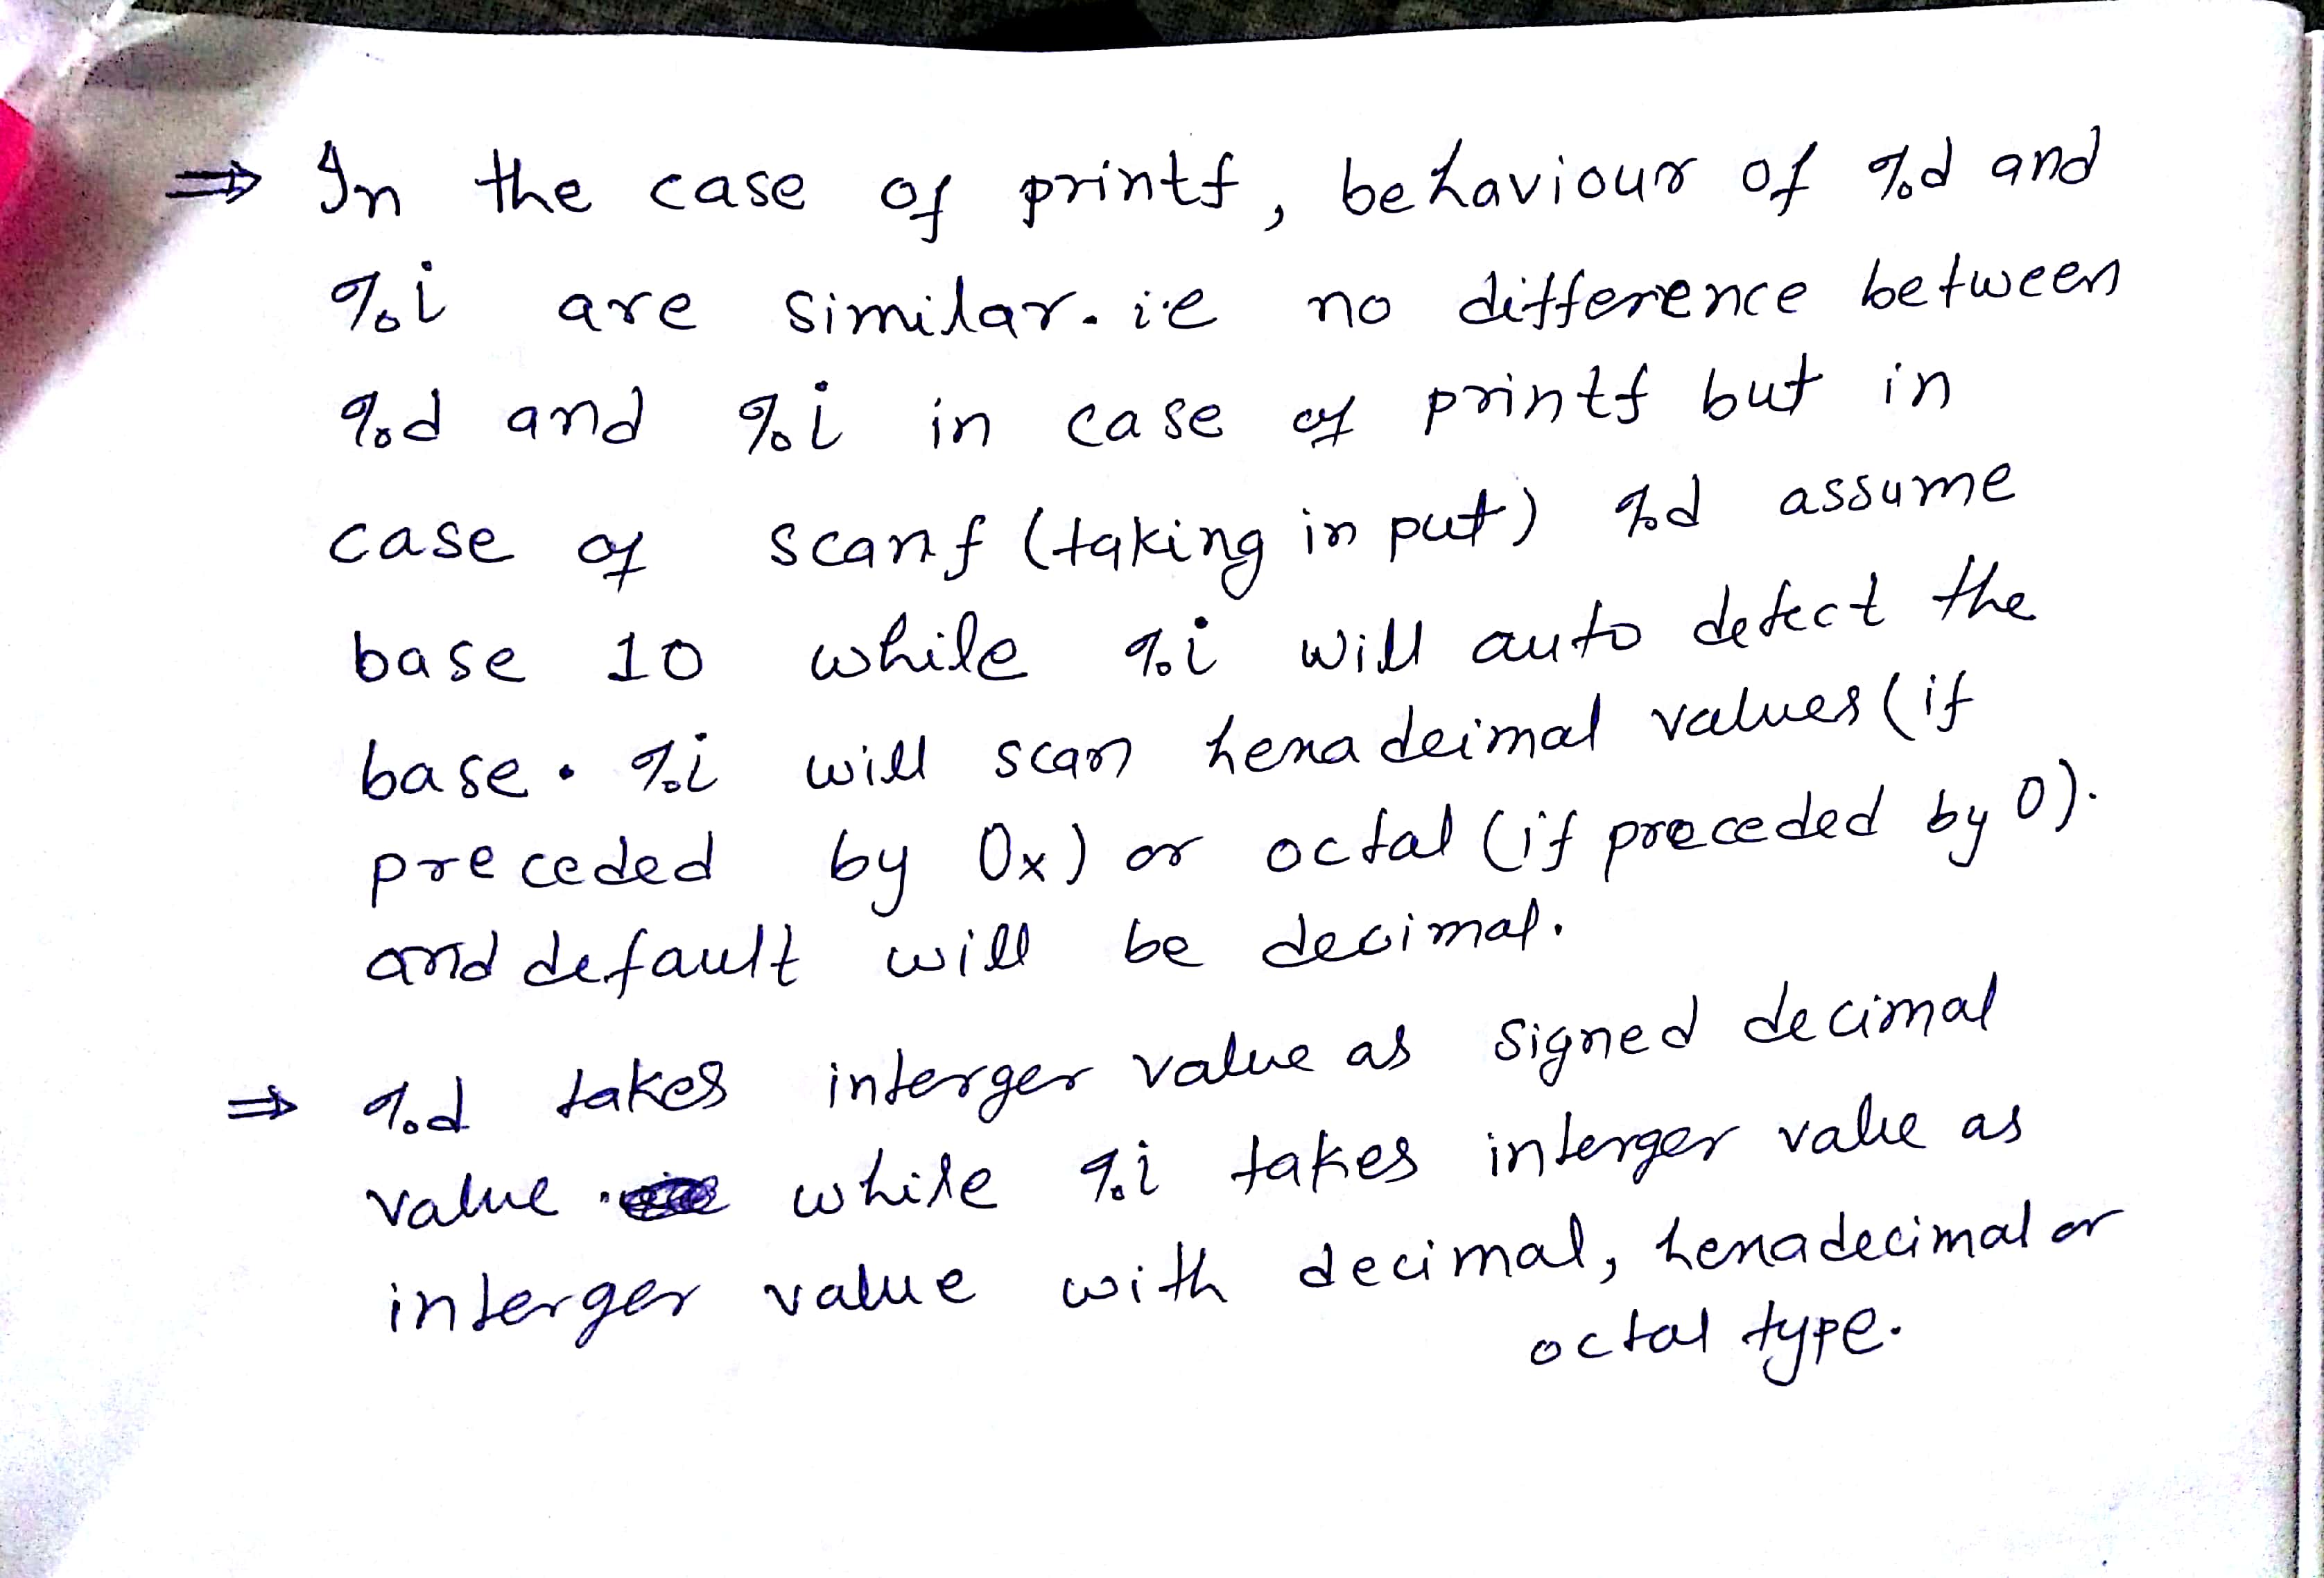 ⇒ In the case of printf, behaviour of %d and
%i are similar. i.e no difference between
%d and %i in case of printf but in
case of scanf (taking input) %d assume
base 10 while %i will auto detect the
base. %i will scan hexadeimal values (if
preceded by 0x) or octal (if preceded by 0).
and default will be decimal.
⇒ %d takes interger value as signed decimal
value while %i takes interger value as
interger value with decimal, hexadecimal or
octal type.